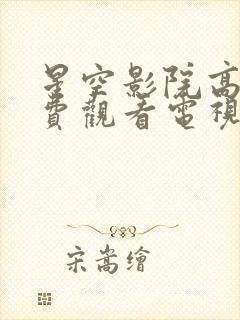 星空影院高
費觀看電視
宋嵩繪